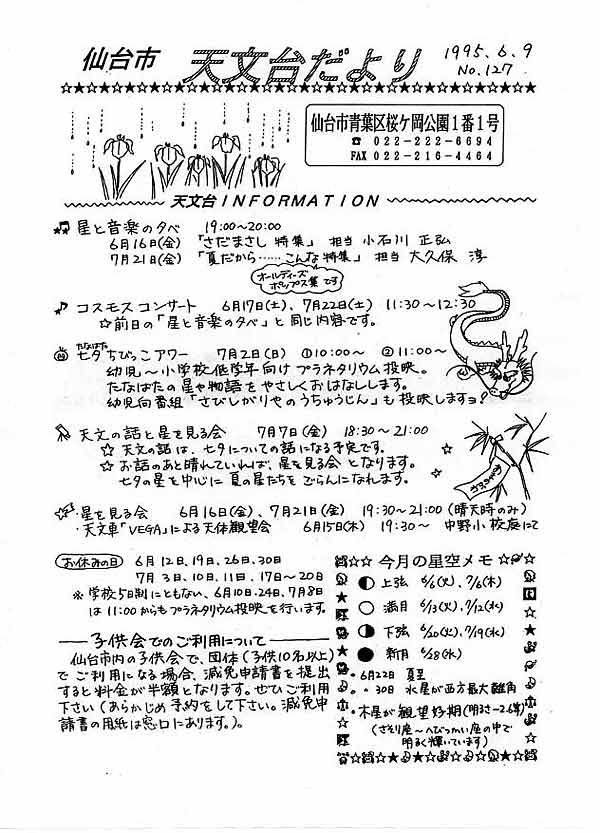 仙台市 天文台だより 1995.6.9
No.127
仙台市青葉区桜ケ岡公園1番1号
☎ 022-222-6694
FAX 022-216-4464
天文台INFORMATION
星と音楽の夕べ 19:00~20:00
6月16日(金) 「さだまさし 特集」 担当 小石川 正弘
7月21日(金) 「夏だから……こんな特集」 担当 大久保 淳
オールディーズ
ポップス集です
コスモスコンサート 6月17日(土)、7月22日(土) 11:30~12:30
☆前日の「星と音楽の夕べ」と同じ内容です。
たなばた
七夕ちびっこアワー 7月2日(日) ①10:00~ ②11:00~
幼児~小学校低学年向けプラネタリウム投映。
たなばたの星や物語をやさしくおはなしします。
幼児向番組「さびしがりやのうちゅうじん」も投映しますョ!
天文の話と星を見る会 7月7日(金) 18:30~21:00
☆ 天文の話は、七夕についての話になる予定です。
☆ お話のあと晴れていれば、星を見る会 となります。
七夕の星を中心に 夏の星たちを ごらんになれます。
・星を見る会 6月16日(金)、7月21日(金) 19:30~21:00(晴天時のみ)
・天文車「VEGA」による天体観望会 6月15日(木) 19:30~ 中野小校庭にて
お休みの日 6月12日、19日、26日、30日
7月3日、10日、11日、17日~20日
※学校5日制にともない、6月10日、24日、7月8日
は11:00からもプラネタリウム投映を行います。
子供会でのご利用について
仙台市内の子供会で、団体(子供10名以上)
でご利用になる場合、減免申請書を提出
すると料金が半額となります。ぜひご利用
下さい(あらかじめ予約をして下さい。減免申
請書の用紙は窓口にあります。)。
☆☆ 今月の星空メモ ☆
上弦 6/6(火)、7/6(木)
満月 6/13(火)、7/12(水)
下弦 6/20(火)、7/19(水)
新月 6/28(水)
・6月22日 夏至
・〃30日 水星が西方最大離角
・木星が観望好期(明るさ-2.6等)
(さそり座~へびつかい座の中で
明るく輝いています)